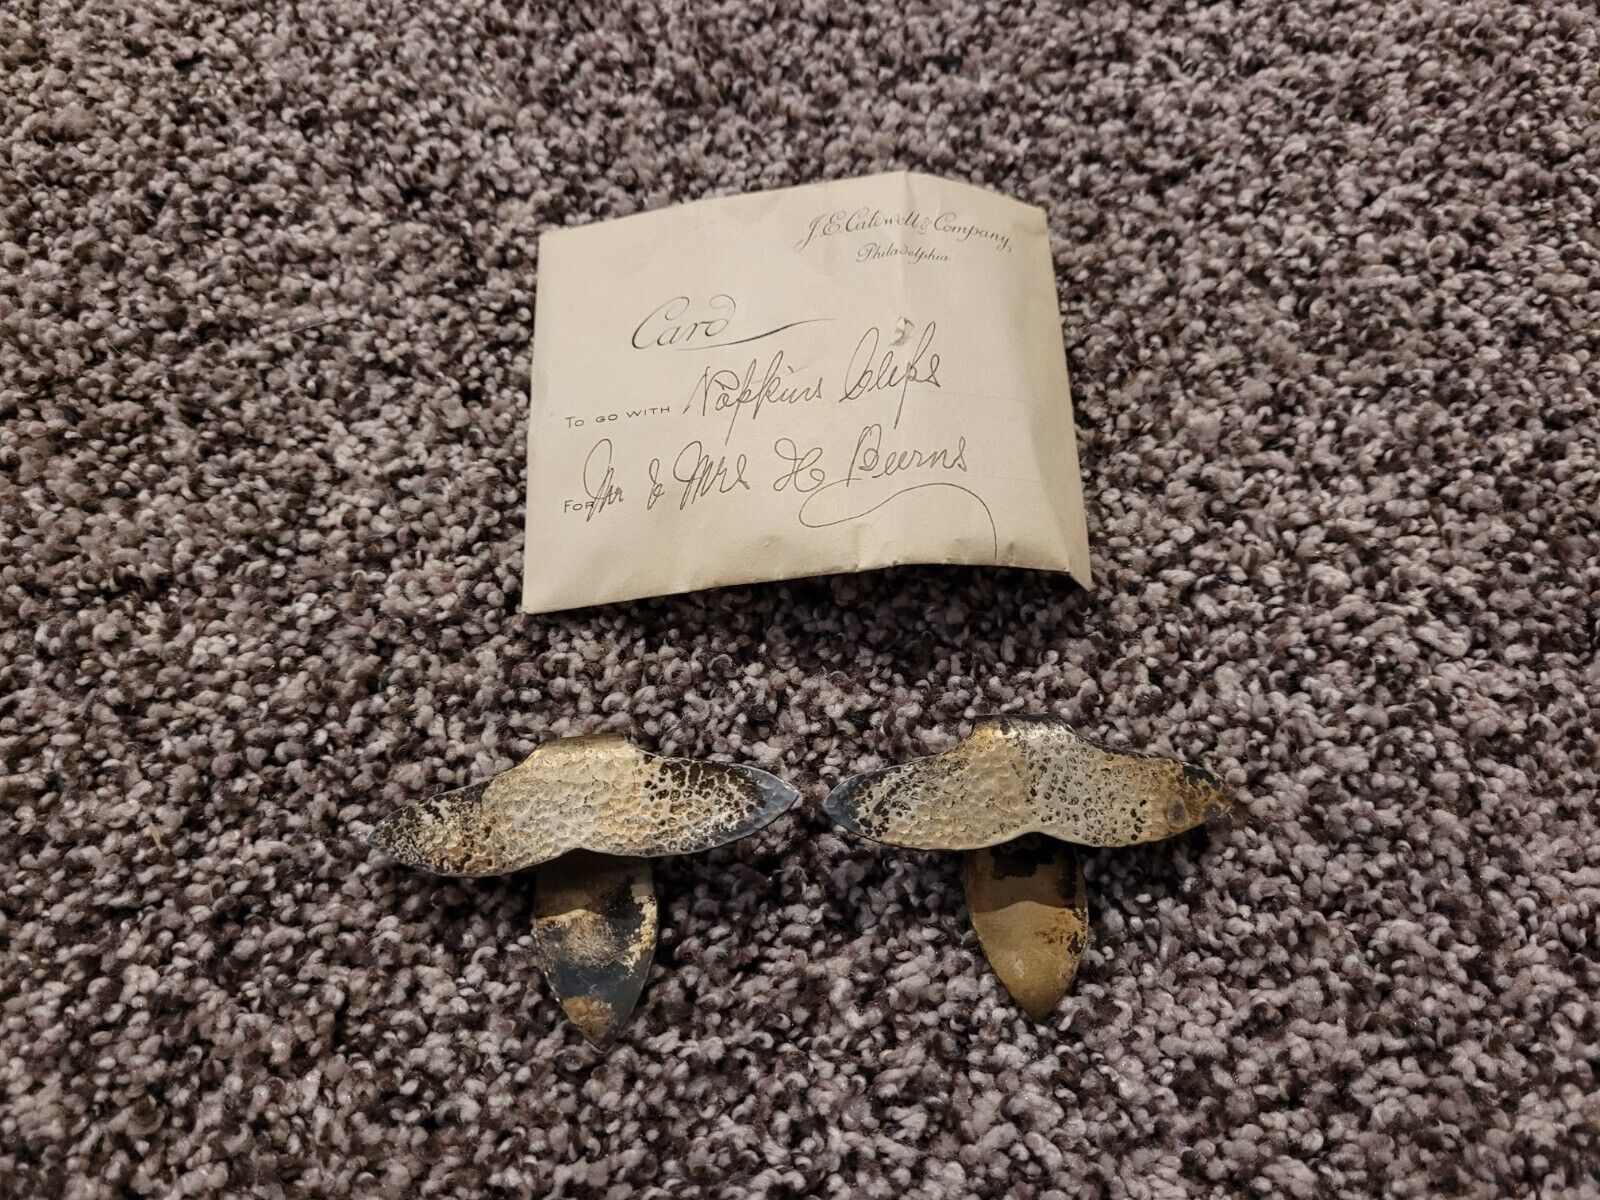 J.E. Caldwell & Company,
Philadelphia
Card
To go with Napkins Clips
For Mr & Mrs H Burns